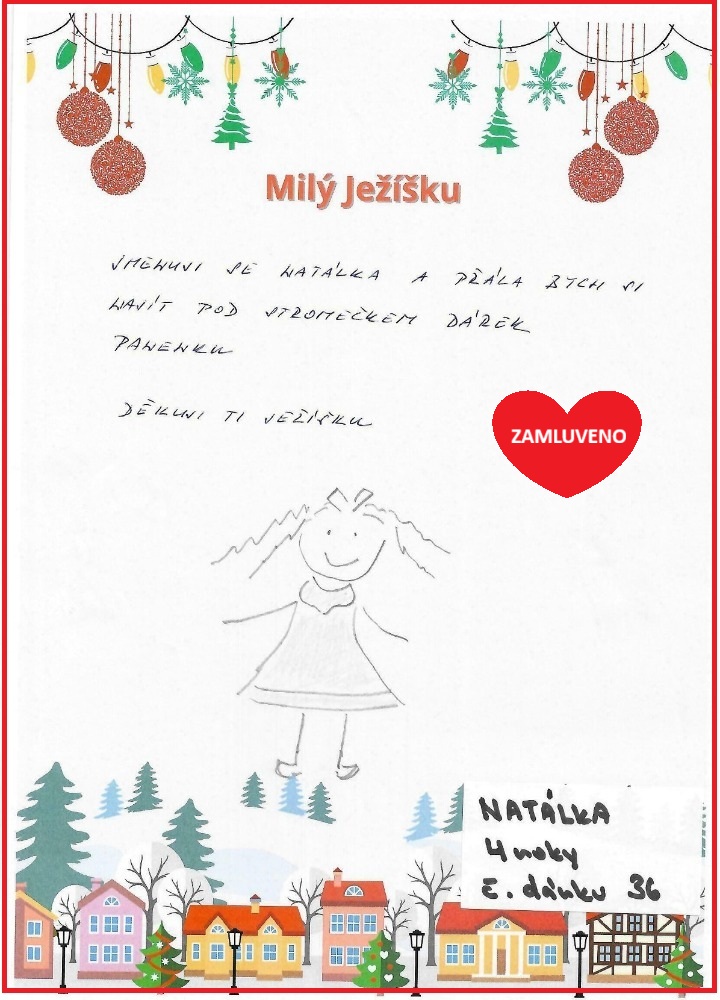 Milý Ježíšku
JMENUJI SE NATÁLKA A PŘÁLA BYCH SI
NAJÍT POD STROMEČKEM DÁREK
PANENKU
DĚKUJI TI JEŽÍŠKU
ZAMLUVENO
NATÁLKA
4 roky
č. dárku 36